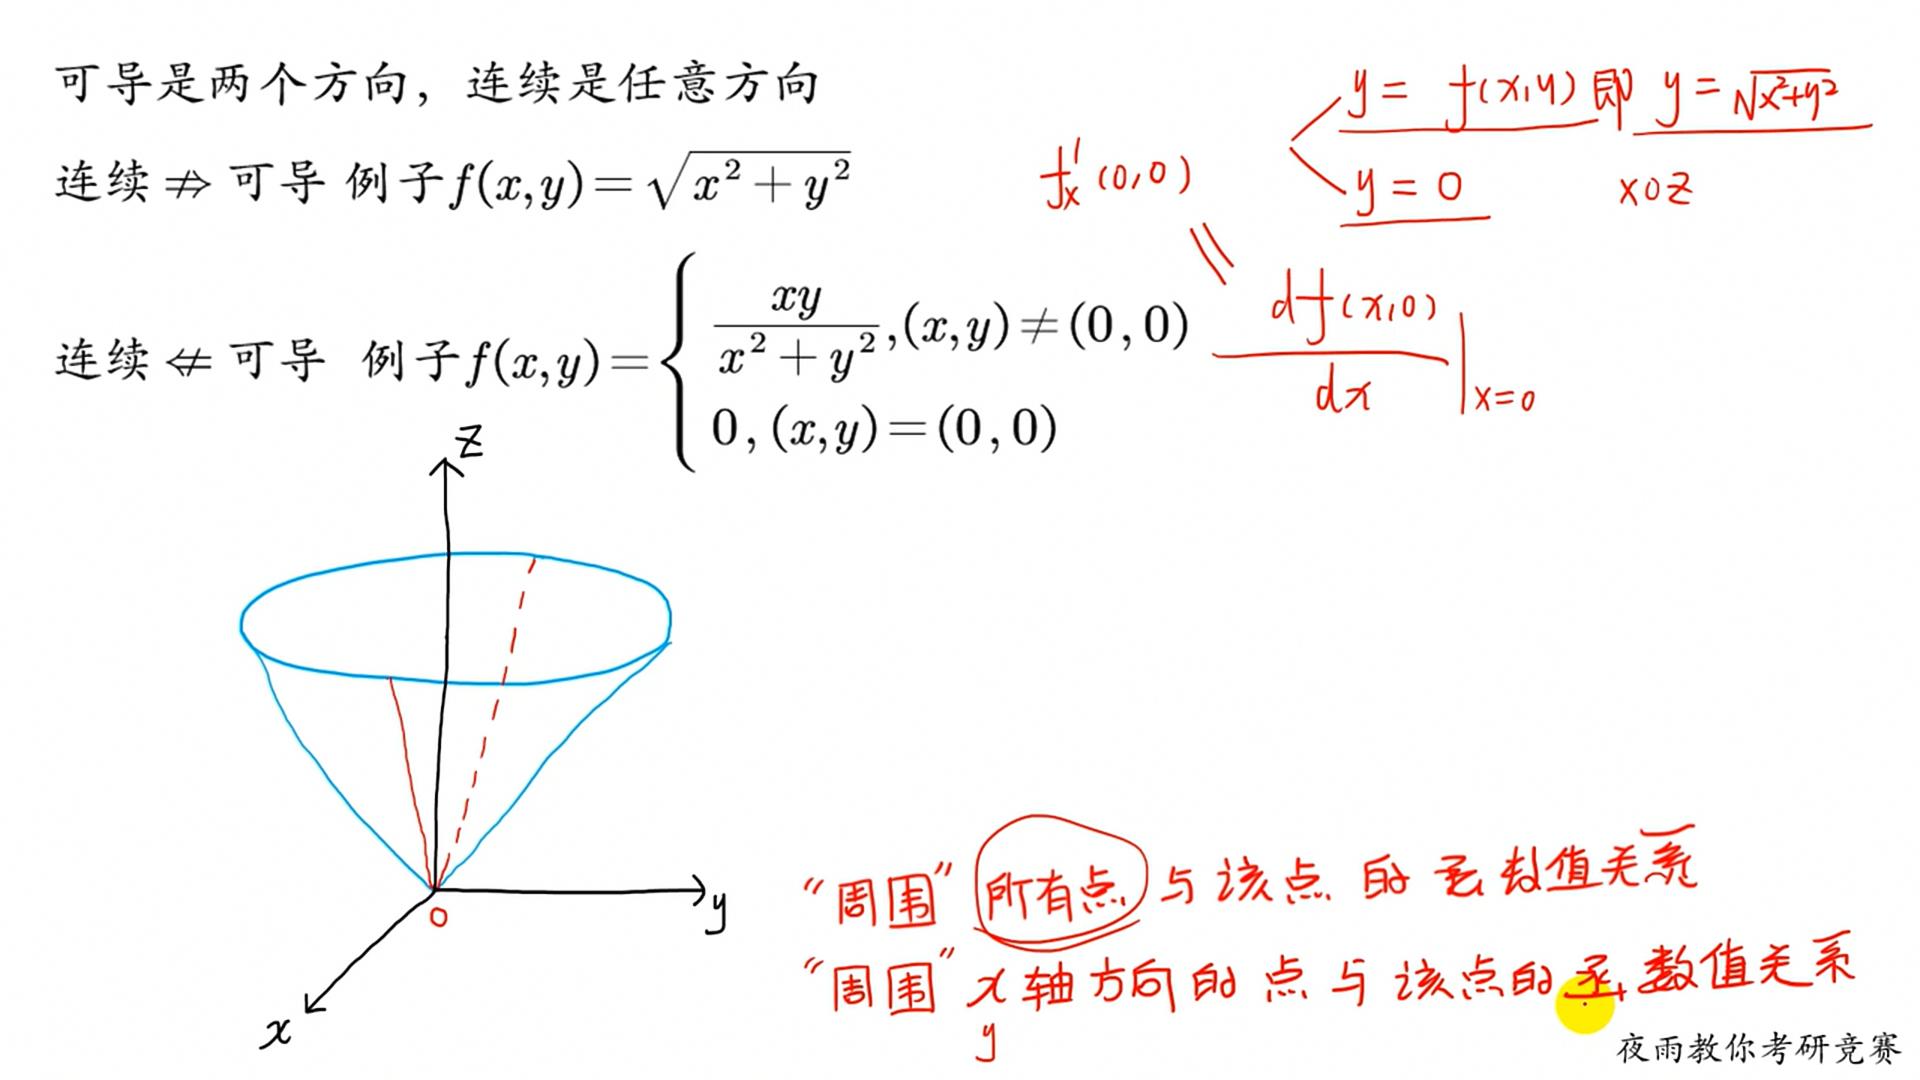 可导是两个方向，连续是任意方向
连续 ⇏ 可导 例子f(x,y)=√(x²+y²)
连续 ⇍ 可导 例子f(x,y)={ xy/(x²+y²),(x,y)≠(0,0)
0,(x,y)=(0,0)
y = f(x,y) 即 y = √(x²+y²)
y = 0 xoz
f'x(0,0)
= df(x,0)/dx |x=0
z
y
x
0
“周围” 所有点 与该点 的 函数值关系
“周围” x 轴方向的点与该点的函数值关系
y
夜雨教你考研竞赛